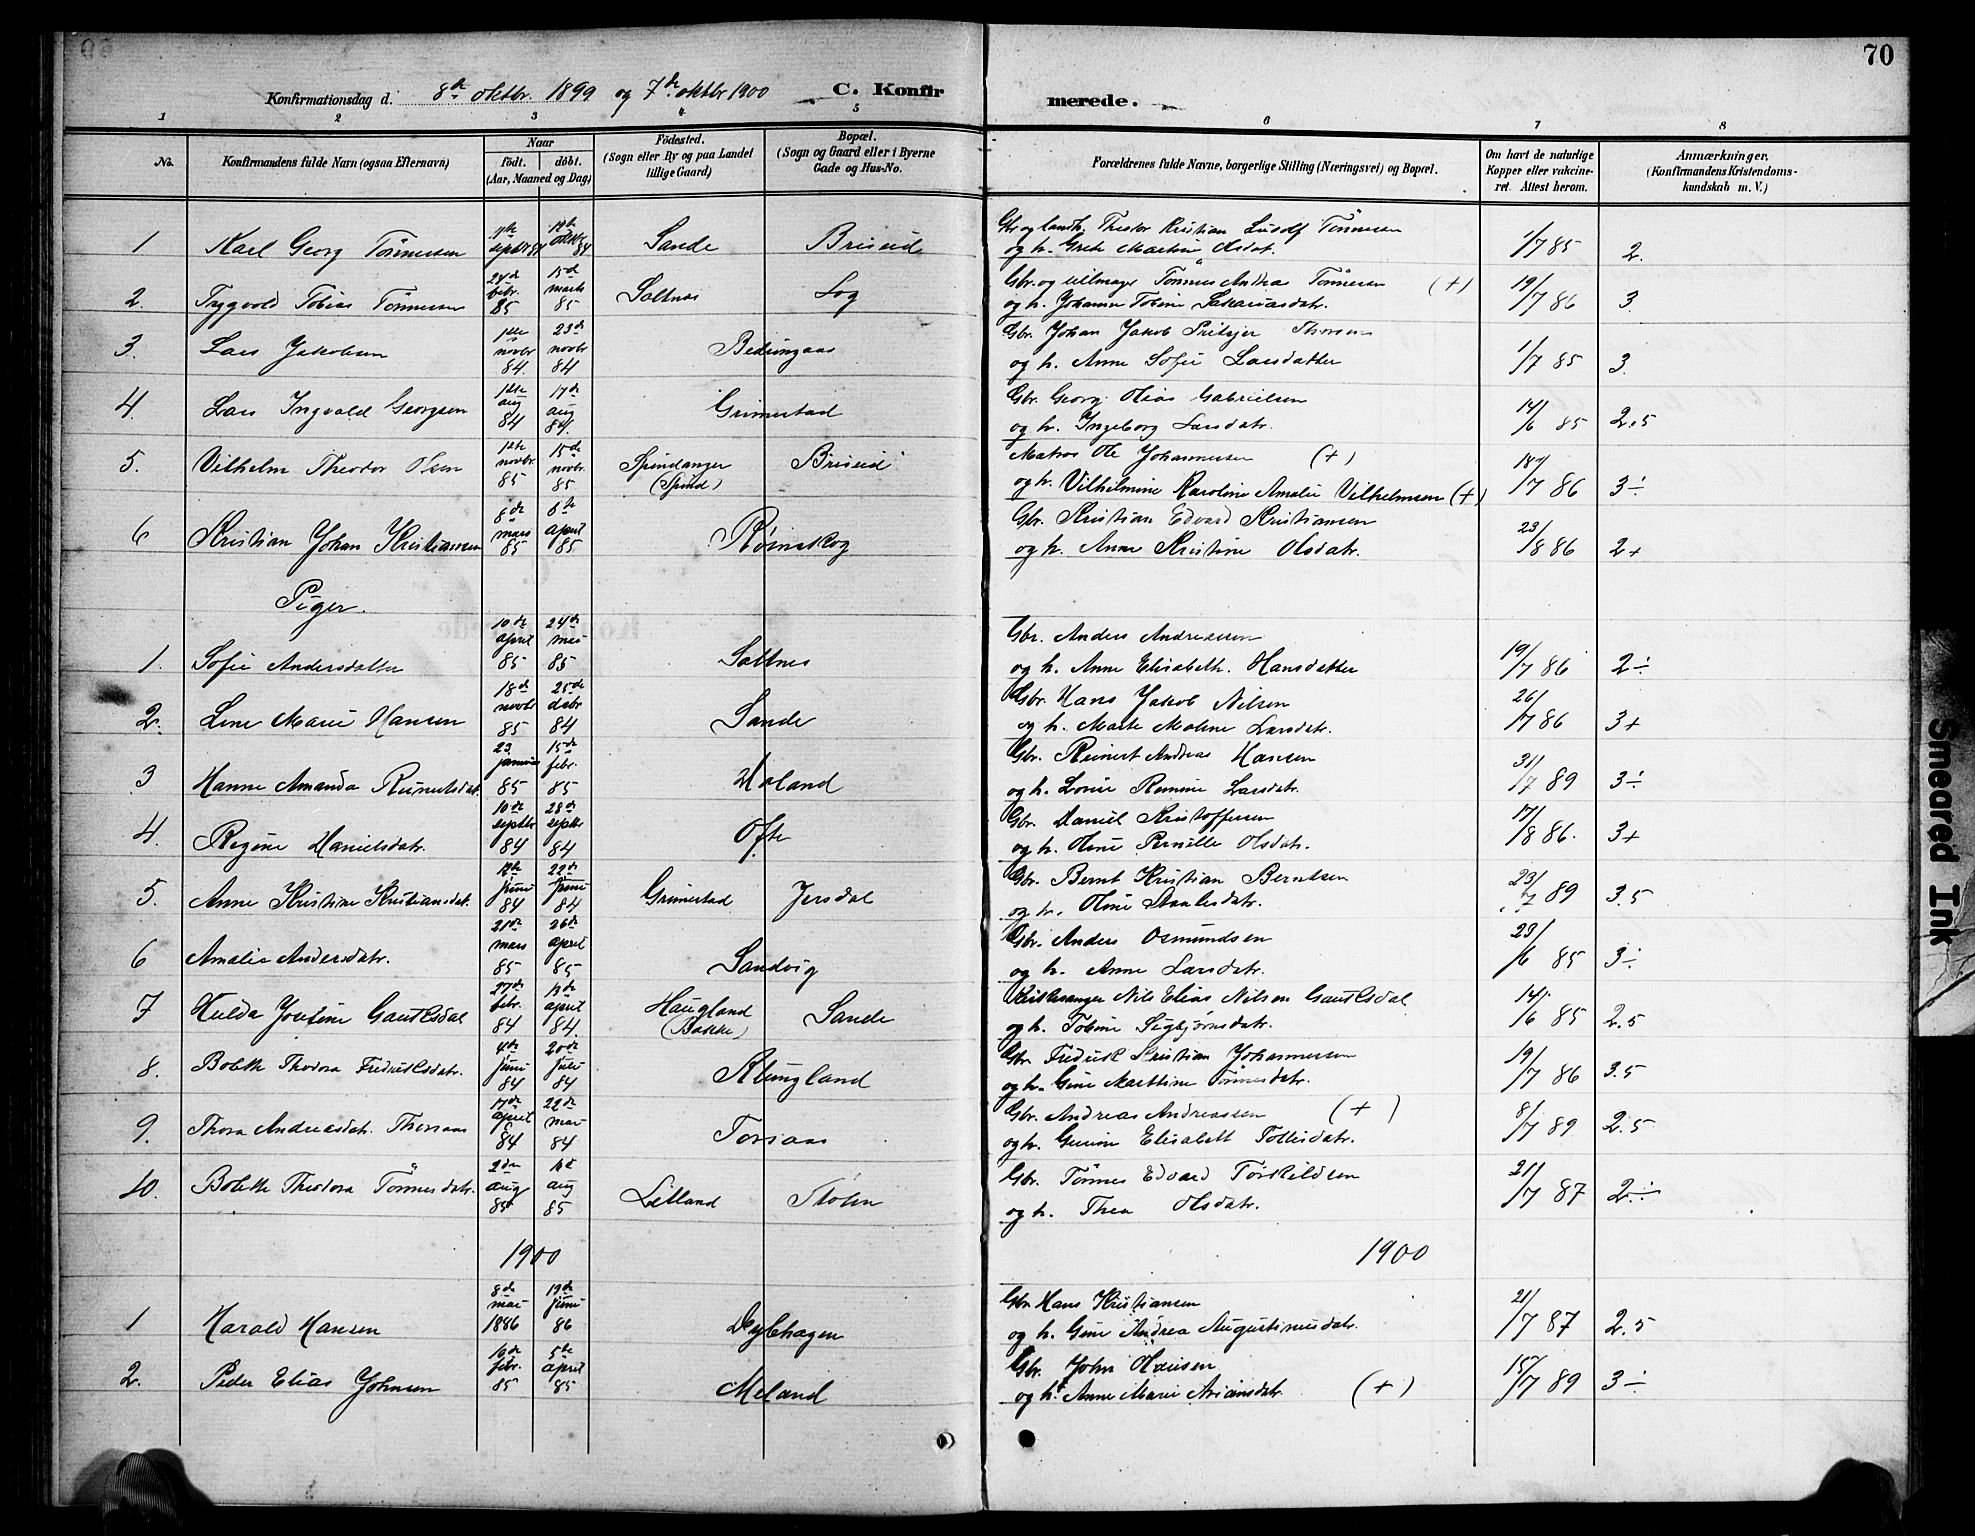 70
Konfirmationsdag d. 8de oktbr. 1899 og 7de oktbr 1900 C. Konfirmerede.
1 2 3 4 5 6 7 8
No. Konfirmandens fulde Navn (ogsaa Efternavn) Naar födt. döbt. (Aar, Maaned og Dag) Födested. (Sogn eller By og paa Landet tillige Gaard) Bopæl. (Sogn og Gaard eller i Byerne Gade og Hus-No. Forældrenes fulde Navne, borgerlige Stilling (Næringsvei) og Bopæl. Om havt de naturlige Kopper eller vakcineret. Attest herom. Anmærkninger. (Konfirmandens Kristendomskundskab m. V.)
1 Karl Georg Tönnesen septbr 84 oktbr 84 Sande Briseid Theodor Kristian Ludolf Tönnesen
og h. Grete Martine Olsdat. 1/7 85 2.
2. Trygvold Tobias Tönnesen 24de febr. 85 15de marts 85 Saltnes Log Gbr. og uhrmager Tönnes Andreas Tönnesen (+)
og h. Johanne Tobine Sakariasdatr. 19/7 86 3
3. Lars Jakobsen novbr 84 23de novbr 84 Bedringaas Gbr. Johan Jakob Fritsjer Thorsen
og h. Anne Sofie Larsdatter 1/7 85 3.
4. Lars Ingvald Georgsen 12te aug 84 17de aug 84. Grimestad Gbr. Georg Olias Gabrielsen
og h. Ingeborg Larsdatr. 14/6 85 2.5
5. Vilhelm Theodor Olsen 12te novbr. 85 15de novbr. 85 Spindanger (Spind) Briseid Matros Ole Johannesen (+)
og h. Vilhelmine Karoline Amalie Vilhelmsen (+) 18/7 86 3÷
6 Kristian Johan Kristiansen 6de mars 85 6te april 85 Röinskog Gbr. Kristian Edvard Kristiansen
og h. Anne Kristine Olsdatr. 23/8 86 2+
Piger.
1. Sofie Andersdatter 10de april 85 24de mai 85 Saltnes Gbr. Anders Andreassen
og h. Anne Elisabeth Hansdatter 19/7 86 2÷
2. Lene Marie Hansen 18de novbr 85 25de debr 84 Sande Gbr. Hans Jakob Nilsen
og h. Marte Malene Larsdatr. 26/7 86 3+
3 Hanne Amanda Reinertsdat. 23. januar 85 15de febr. 85 Høland Gbr. Reinert Andreas Hansen
og h. Lovise Ramine Larsdatr. 31/7 89 3÷
4. Regine Danielsdatr. 10de septbr 84 28de septbr 84 Ofte Gbr. Daniel Kristoffersen
og h. Oline Pernille Olsdatr. 17/8 86. 3+
5. Anne Kristine Kristiansdat. juni 84 22de juni 84 Grimestad Jersdal Gbr. Bernt Kristian Berntsen
og h. Oline Staalesdatr. 23/7 89 3.5
6 Amalie Andersdatr. 21de mars 85 26de april 85 Sandvig Gbr. Anders Osmundsen
og h. Anne Larsdatr. 23/6 85 3÷
7 Hulda Josefine Gautlsdal 27de febr. 84 13de april 84. Haugland (Bakke) Sande Kirkesanger Nils Elias Nilsen Gautlsdal
og h. Tobine Sigbjørnsdatr. 14/6 85 2.5
8. Bolette Theodora Fredriksdatr. 4de juni 84 20de juli 84 Klungland Gbr. Fredrik Kristian Johannessen
og h. Gine Marthine Tönnesdatr. 19/7 86 3.5
9. Thora Andreasdatr. Thorsaas 17de april 84 22de mai 84 Torsaas Gbr. Andreas Andreassen (+)
og h. Gunine Elisabeth Tollisdatr. 8/7 89 2.5
10. Bolette Theodora Tönnesdatr. 2den aug 85 aug 85 Leiland Stölen Gbr. Tönnes Edvard Torkildsen
og h. Thea Olsdatr. 21/7 87 2÷
1900 1900
1 Harald Hansen 8de mai 1886 13de juni 86 Dybhagen Gbr. Hans Kristiansen
og h. Gine Andrea Augustinusdatr. 21/7 87 2.5
2. Peder Elias Johnsen 16de febr. 85 5te april 85 Meland Gbr. John Hansen
og h. Anne Marie Ariansdatr. (+) 15/7 89 3÷
Smeared Ink